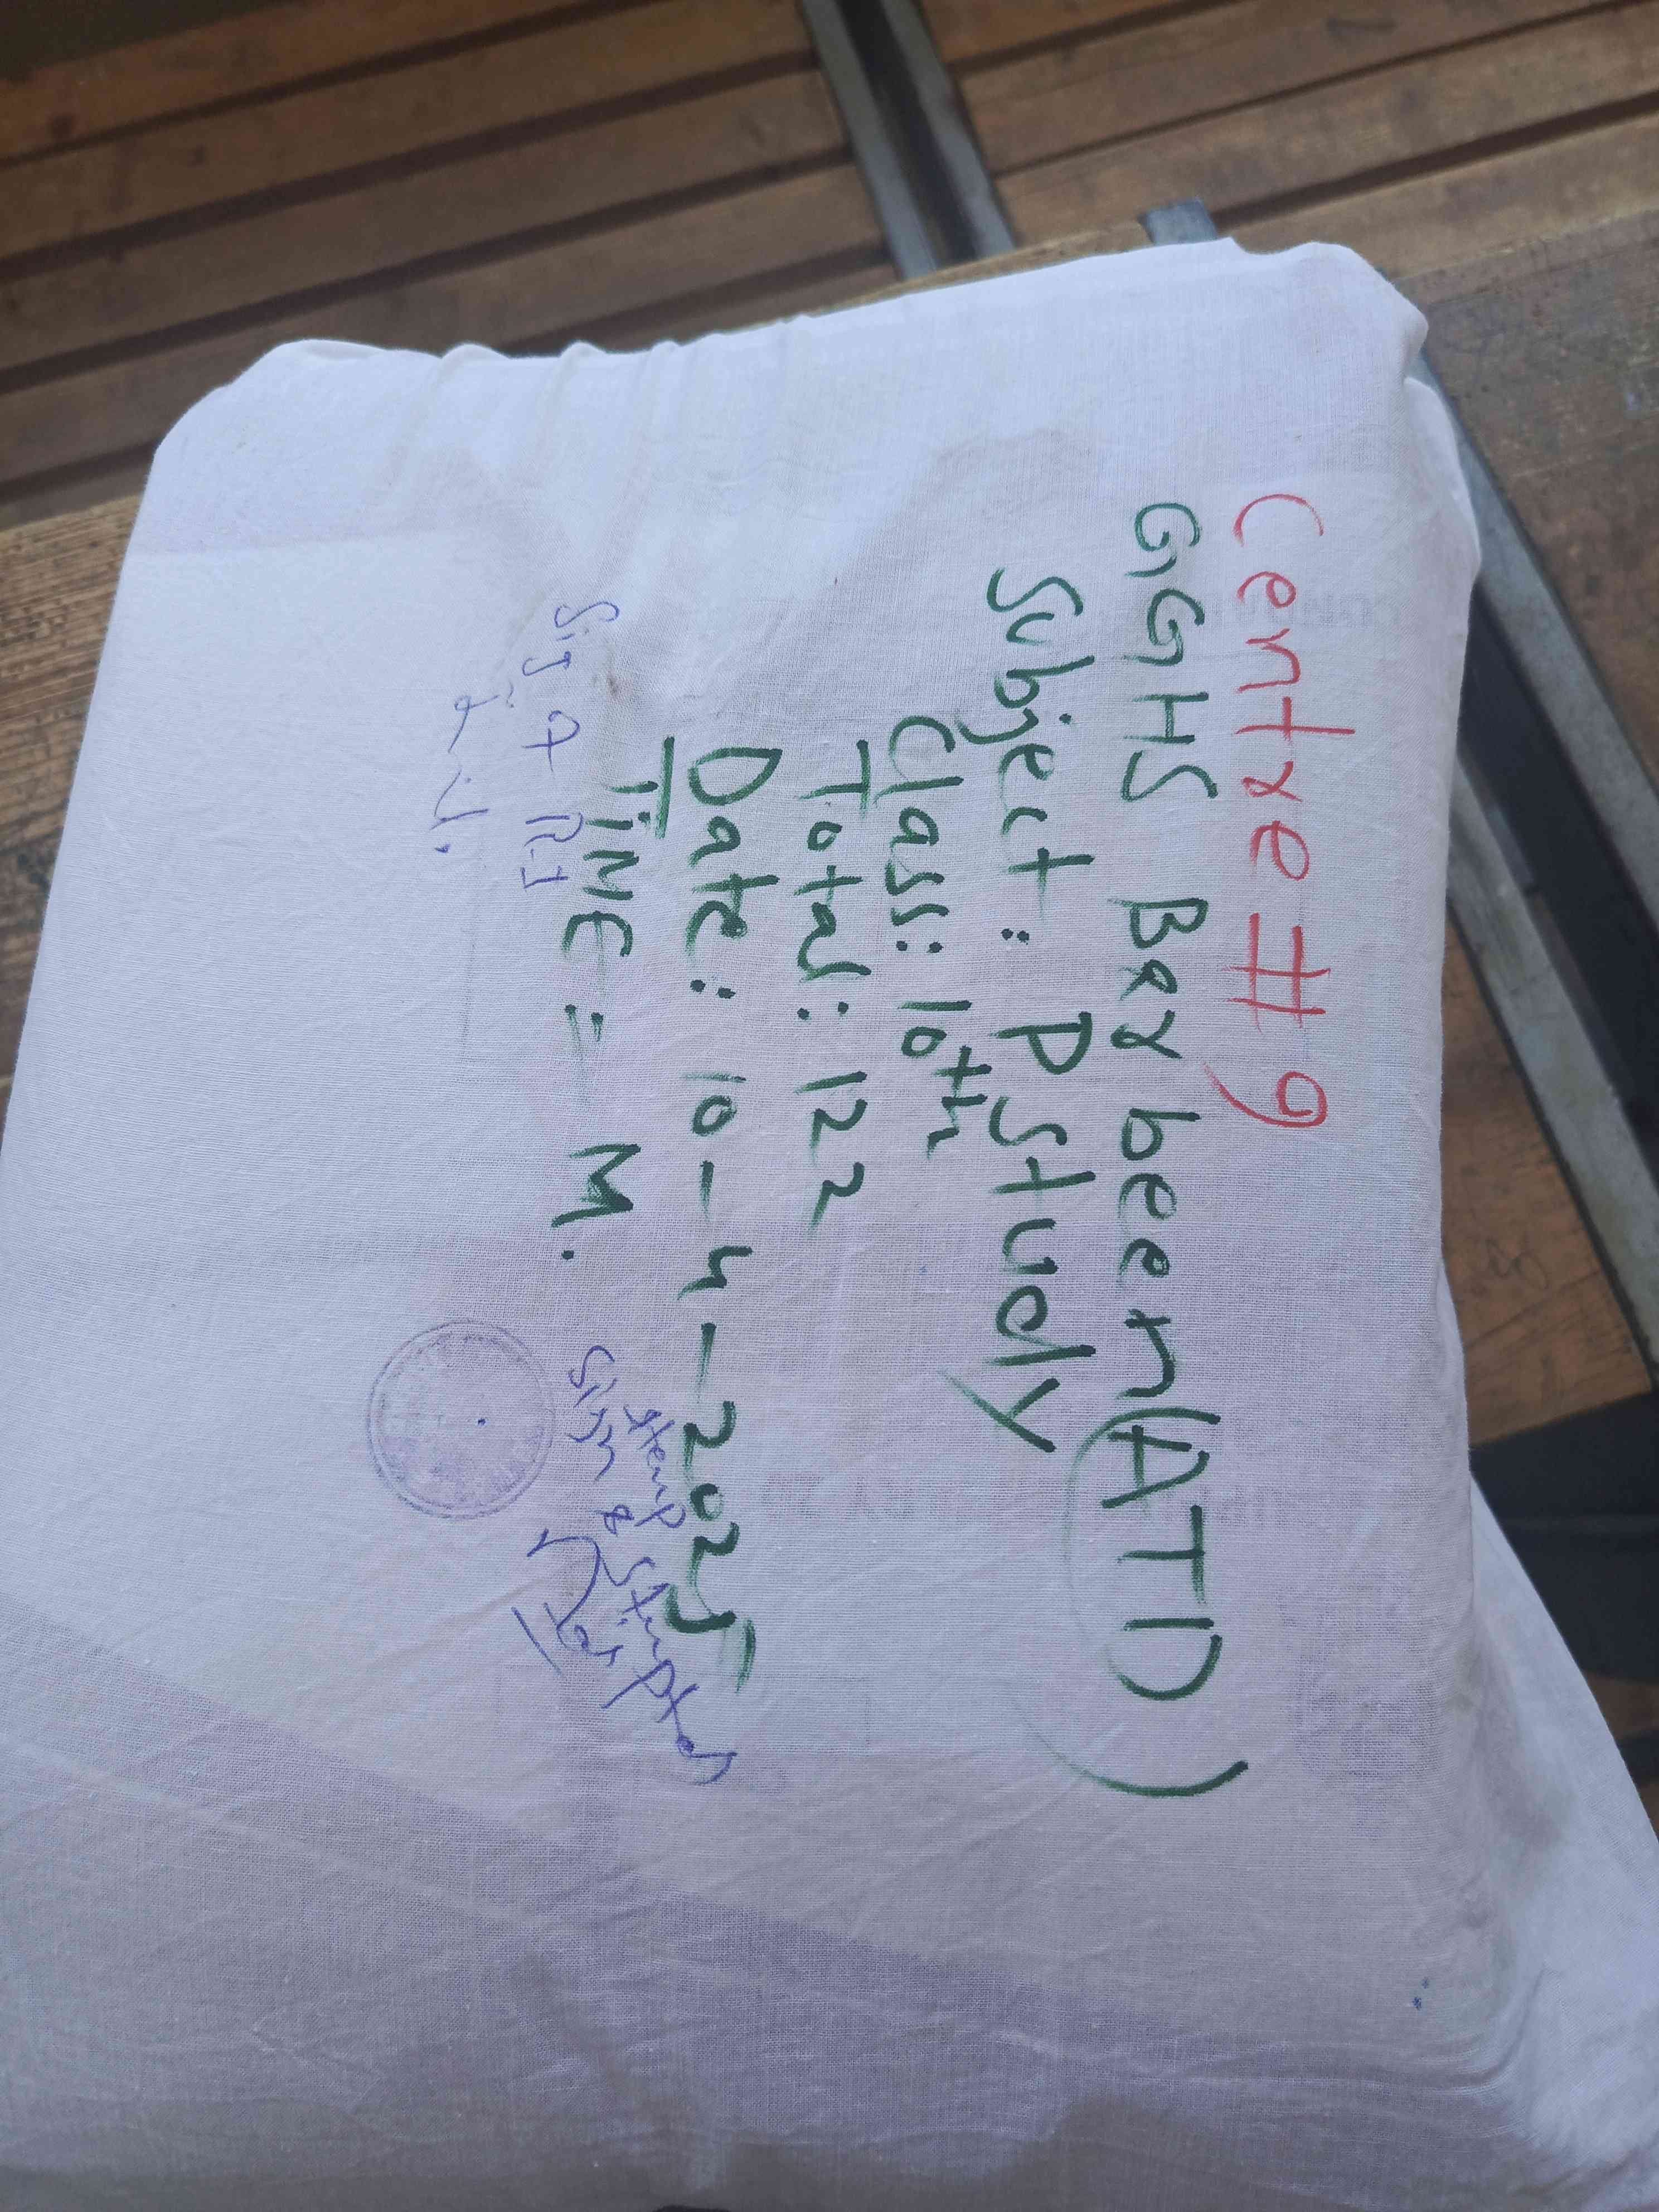 Centre # 9
GGHS Bar been (ATD)
Subject: P Study
Class: 10th
Total: 122
Date: 10-4-2025
TiME = M.
Sig of R.I
Stemp
Sign &